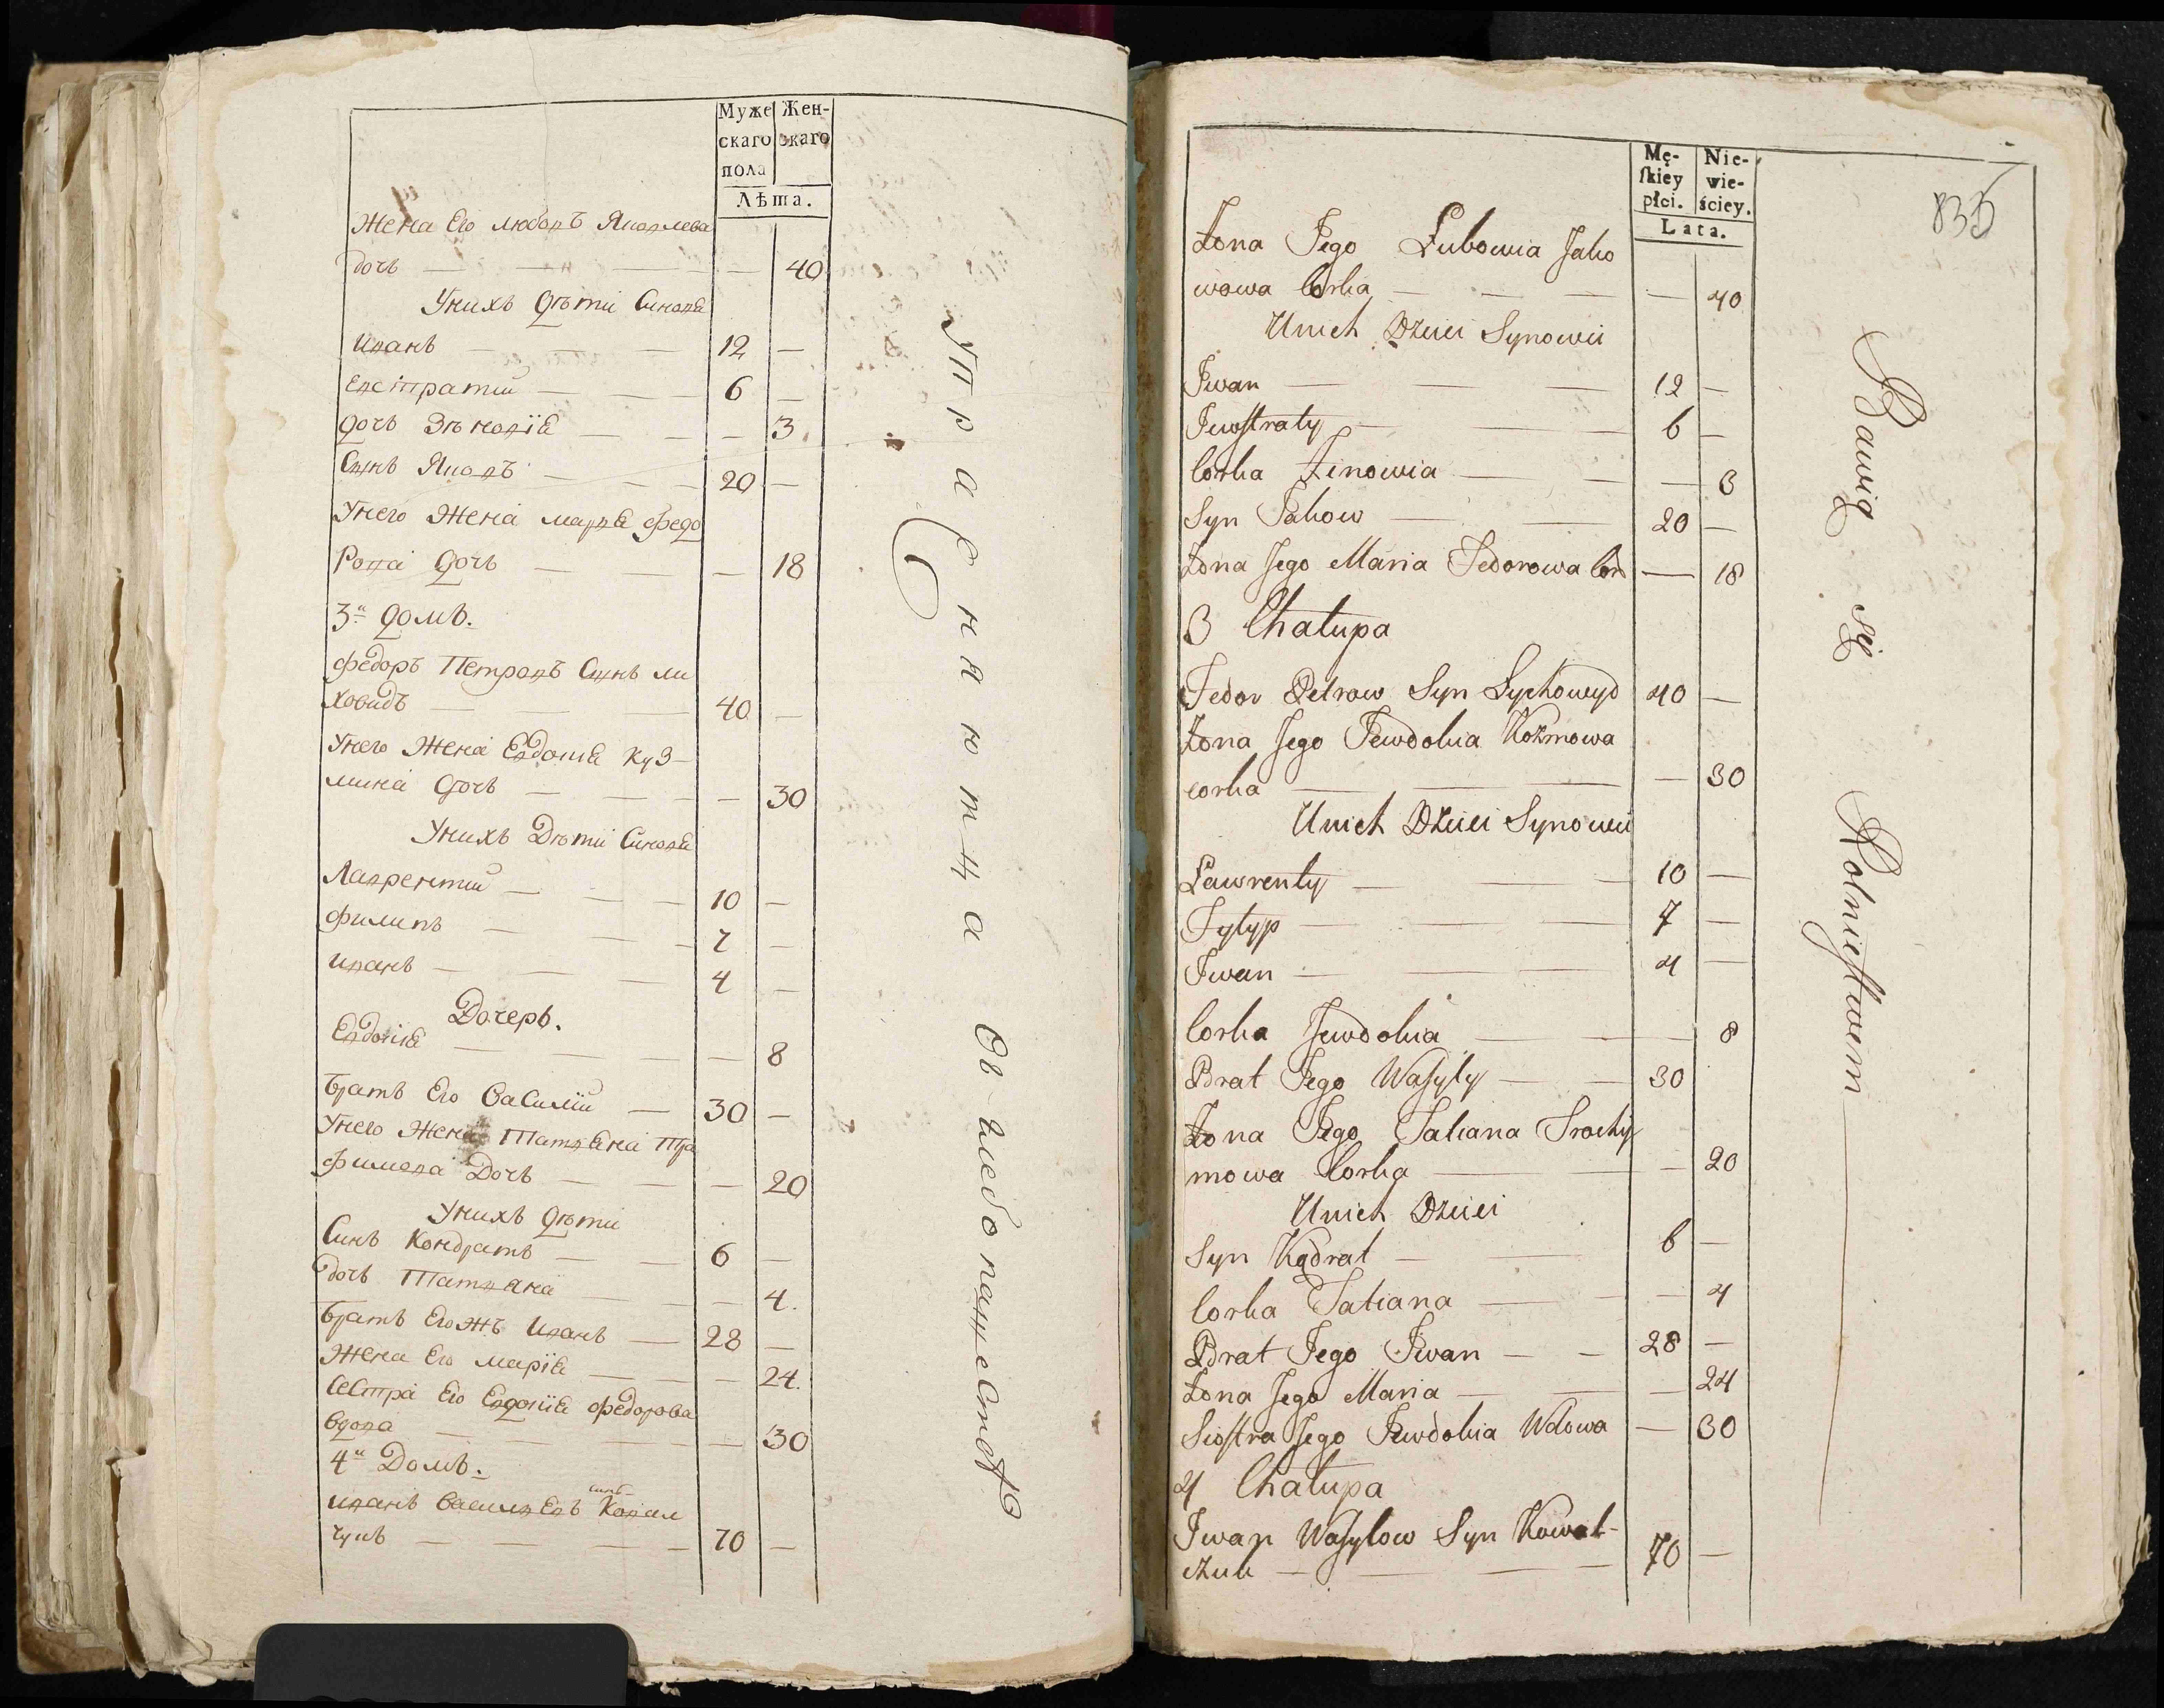 Муже Жен-
скаго скаго
пола
Лѣта.
Жена Его любовъ Яковлева
дочь — — — — 40
Унихъ дѣти Синовѣ
Иванъ — — — 12 —
Евстратий — — — 6 —
дочь Зѣновіѣ — — — 3
Синъ Яковъ — — — 20 —
Унего Жена марѣѣ федо
рова дочь — — — 18
3й домъ.
федоръ Петровъ Синъ ли
ховидъ — — — 40 —
Унего Жена Евдокиѣ куз-
мина дочь — — — — 30
Унихъ Дѣти Синовѣ
Лаврентий — — — 10 —
филипъ — — — 7 —
Иванъ — — — 4 —
Дочерь.
Евдокіѣ — — — — 8
братъ Его Василий — 30 —
Унего Жена Татьяна Тро
фимова Дочь — — — 20
Унихъ дѣти
Синъ Кондратъ — — 6 —
дочь Татьяна — — — 4.
братъ Егожъ Иванъ — 28 —
Жена Его маріѣ — — — 24.
Сестра Его Евдокиѣ федорова
вдова — — — — 30
4й Домъ.
Иванъ Васильевъ синъ Ковал
чукъ — — — — 70 —
Упражняютца въ хлебопашестве
835
Mę- Nie-
ſkiey wie-
płci. ściey.
Lata.
Żona Jego Lubowia Jako
wowa Corka — — — — 40
Unich Dzieci Synowii
Iwan — — — 12 —
Jewſtraty — — 6 —
Corka Zinowia — — — 3
Syn Jakow — — 20 —
Żona Jego Maria Fedorowa Cor — 18
3 Chałupa
Fedor Petrow Syn Lychowyd 40 —
Żona Jego Jewdokia Kozmowa
corka — — — — 30
Unich Dzieci Synowii
Ławrenty — — — 10 —
Fylyp — — — 7 —
Iwan — — — 4 —
Corka Jewdokia — — — 8
Brat Jego Waſyly — — 30
Żona Jego Tatiana Trochy
mowa Corka — — — 20
Unich Dzieci
Syn Kądrat — — 6 —
Corka Tatiana — — — 4
Brat Jego Iwan — — 28 —
Żona Jego Maria — — — 24
Sioſtra Jego Jewdokia Wdowa — 30
4 Chałupa
Iwan Waſylow Syn Kowal-
czuk — — — 70 —
Bawią się Rolnictwem